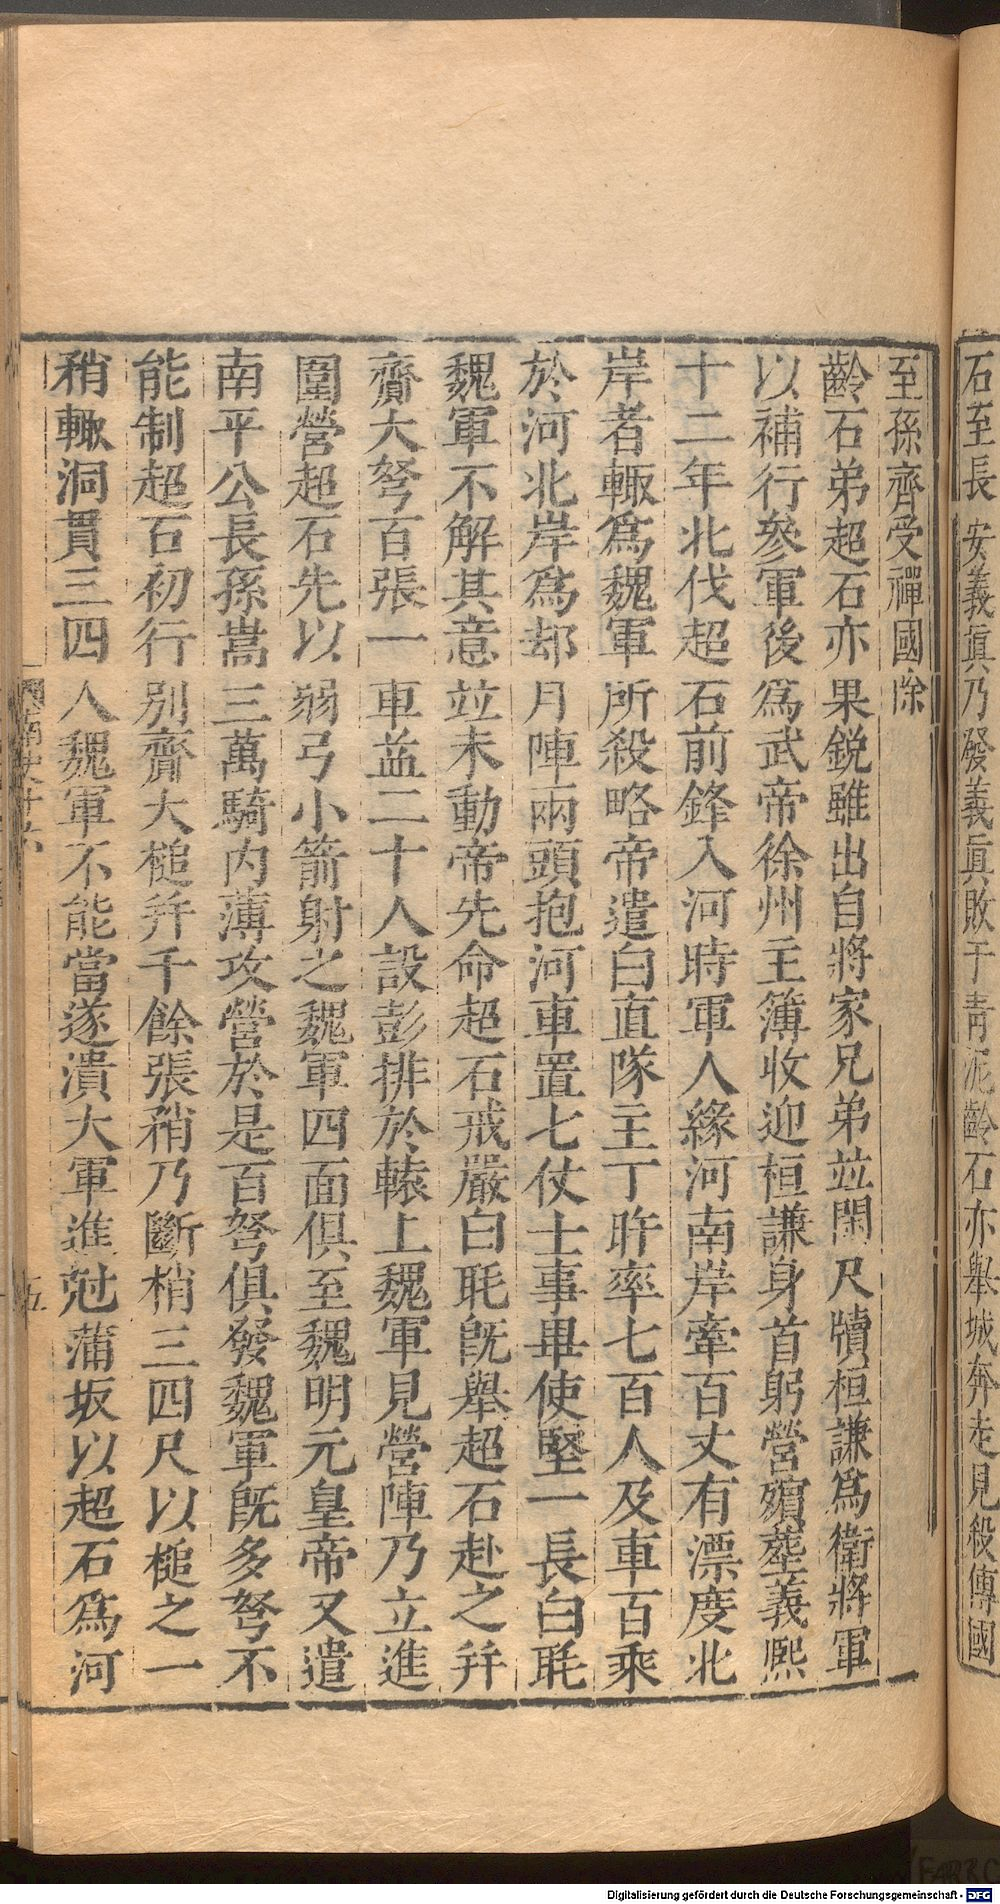 石至長安義眞乃發義眞敗于青泥齡石亦舉城奔走見殺傳國
至孫齊受禪國除
齡石弟超石亦果銳雖出自將家兄弟竝閑尺牘桓謙爲衛將軍
以補行參軍後爲武帝徐州主簿收迎桓謙身首躬營殯葬義熙
十二年北伐超石前鋒入河時軍人緣河南岸牽百丈有漂度北
岸者輙爲魏軍所殺略帝遣白直隊主丁旿率七百人及車百乘
於河北岸爲却月陣兩頭抱河車置七仗士事畢使堅一長白毦
魏軍不解其意竝未動帝先命超石戒嚴白毦旣舉超石赴之幷
齎大弩百張一車益二十人設彭排於轅上魏軍見營陣乃立進
圍營超石先以弱弓小箭射之魏軍四面俱至魏明元皇帝又遣
南平公長孫嵩三萬騎內薄攻營於是百弩俱發魏軍旣多弩不
能制超石初行別齎大槌幷千餘張矟乃斷矟三四尺以槌之一
矟輙洞貫三四人魏軍不能當遂潰大軍進尅蒲坂以超石爲河
南史十六
五
Digitalisierung gefördert durch die Deutsche Forschungsgemeinschaft - DFG